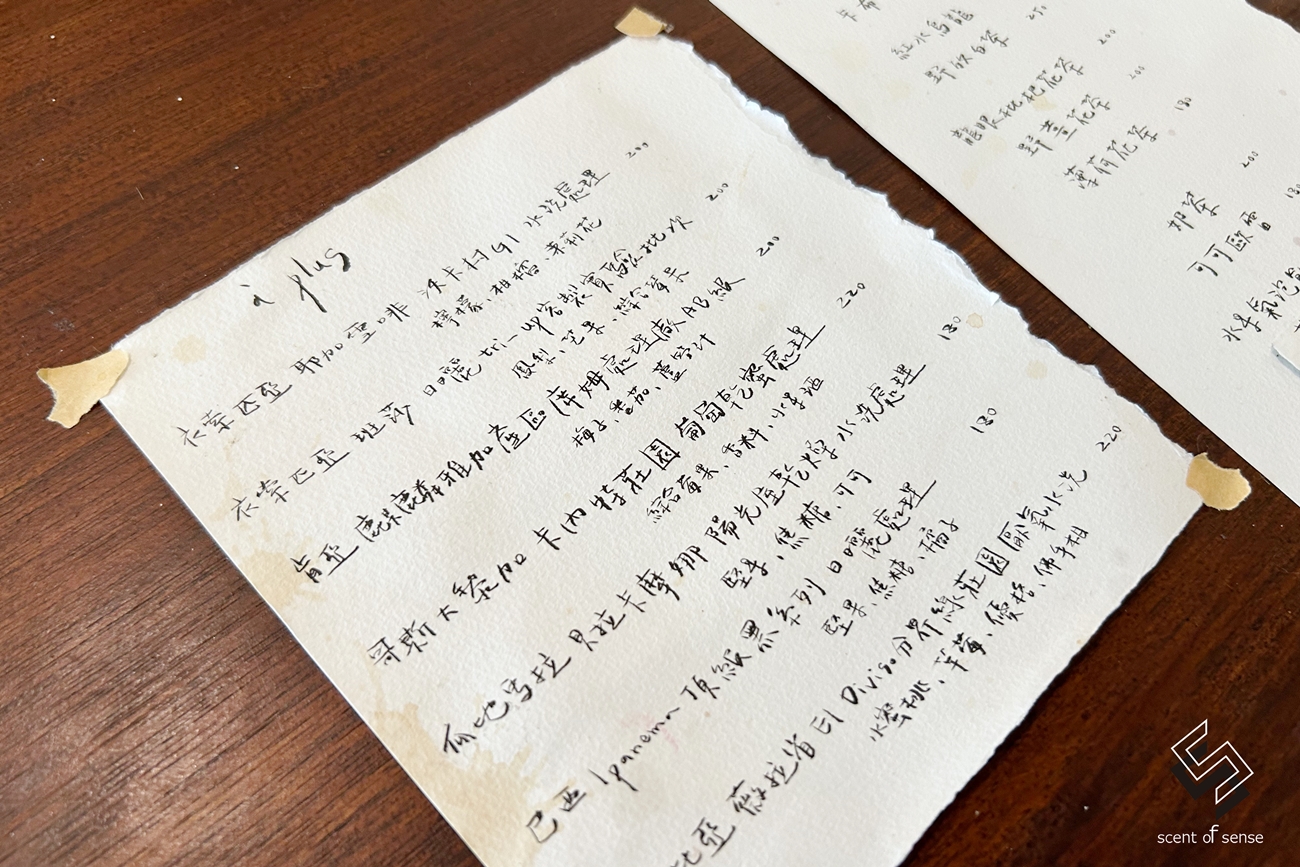 à plus
衣索匹亞 耶加雪啡 沃卡村G1 水洗處理 200
檸檬、柑橘、茉莉花
衣索匹亞 班莎 日曬 客製實驗批次 200
鳳梨、芒果、綜合莓果
肯亞 麒麟雅加產區 庫姆處理廠AB級 200
梅子、番茄、蔗汁
哥斯大黎加 卡內特莊園 葡萄乾蜜處理 220
綜合莓果、香料、水果酒
瓜地馬拉 貝拉卡摩娜 陽光座乾燥水洗處理 180
堅果、焦糖、可可
巴西 Ipanema 頂級黑系列 日曬處理 180
堅果、焦糖、橘子
比亞 薇拉省 El Diviso分界線莊園 厭氧水洗 220
水蜜桃、草莓、優格、佛手柑
卡布
紅水烏龍 250
野放白茶
龍眼枇杷花茶 200
野薑花茶 200
薄荷花茶 180
奶茶 200
可可歐蕾 180
水果氣泡
scent of sense